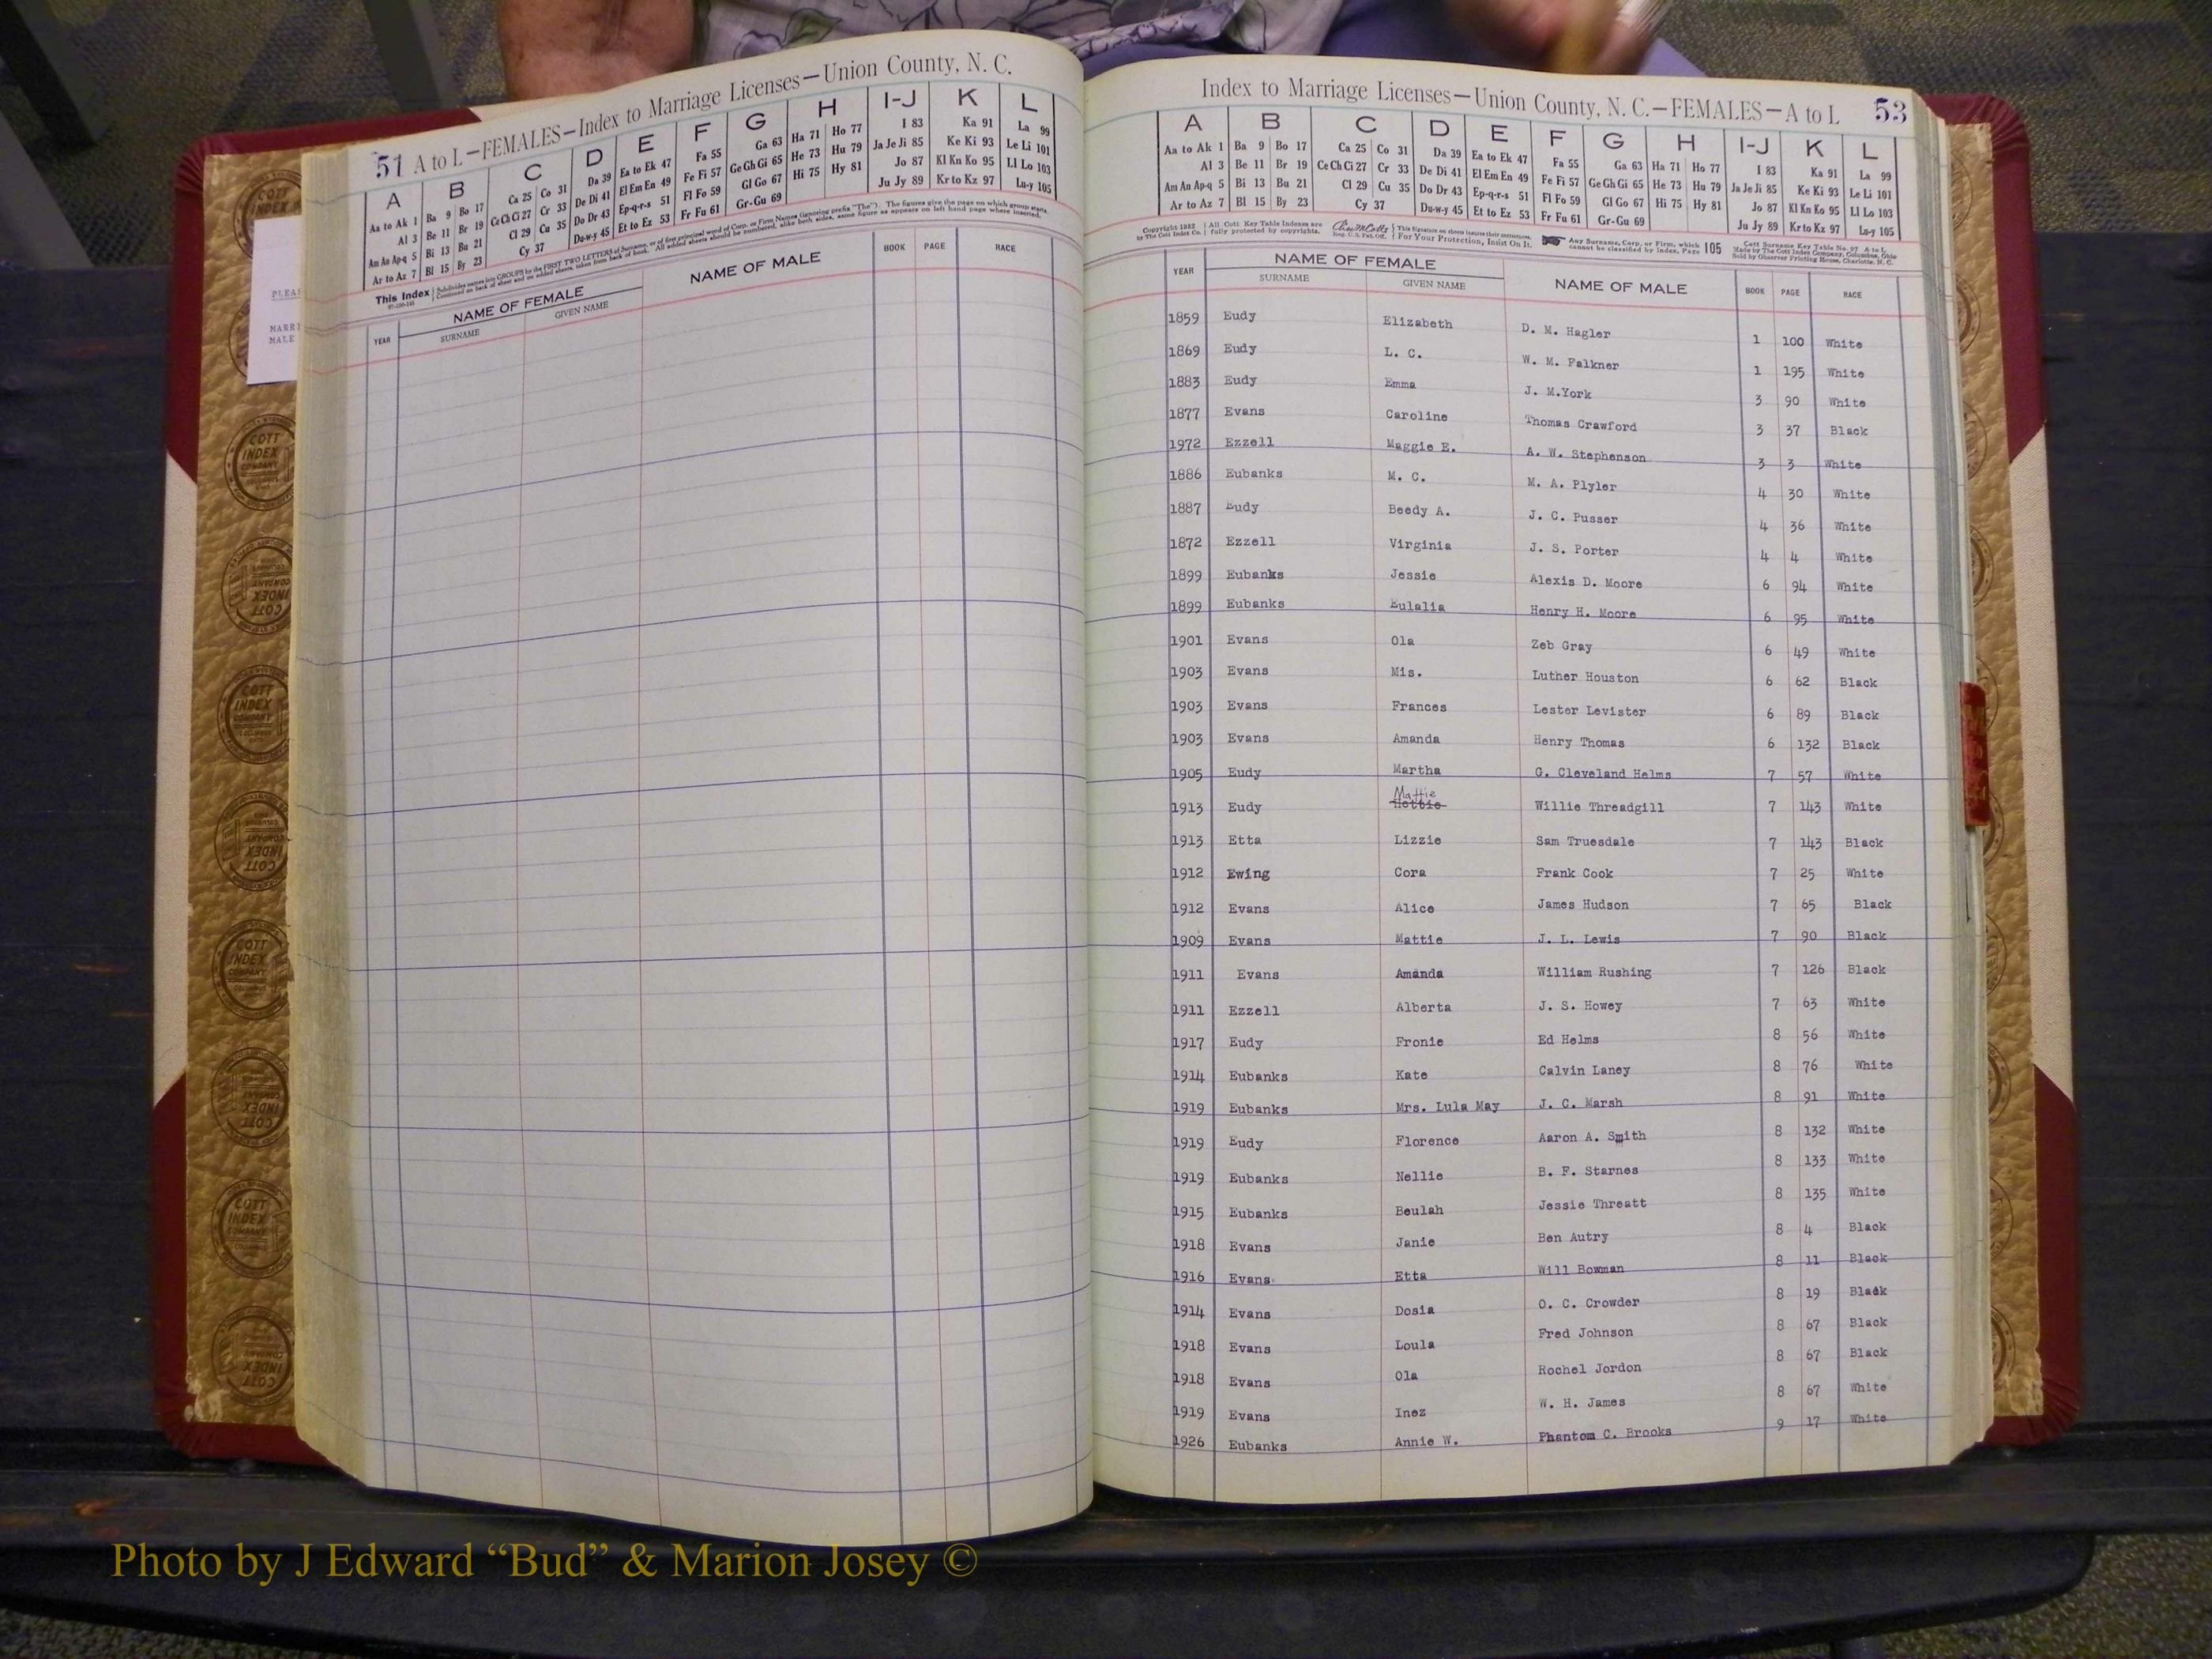 51 A to L—FEMALES—Index to Marriage Licenses—Union County, N. C.
A B C D E F G H I-J K L
Aa to Ak 1 Ba 9 Bo 17 Ca 25 Co 31 Da 39 Ea to Ek 47 Fa 55 Ga 63 Ha 71 Ho 77 I 83 Ka 91 La 99
Al 3 Be 11 Br 19 Ce Ch Ci 27 Cr 33 De Di 41 El Em En 49 Fe Fi 57 Ge Gh Gi 65 He 73 Hu 79 Ja Je Ji 85 Ke Ki 93 Le Li 101
Am An Ap-q 5 Bi 13 Bu 21 Cl 29 Cu 35 Do Dr 43 Ep-q-r-s 51 Fl Fo 59 Gl Go 67 Hi 75 Hy 81 Jo 87 Kl Kn Ko 95 Ll Lo 103
Ar to Az 7 Bl 15 By 23 Cy 37 Du-w-y 45 Et to Ez 53 Fr Fu 61 Gr-Gu 69 Ju Jy 89 Kr to Kz 97 Lu-y 105
This Index
YEAR NAME OF FEMALE NAME OF MALE BOOK PAGE RACE
SURNAME GIVEN NAME
PLEAS
MARRI
MALE
Index to Marriage Licenses—Union County, N. C.—FEMALES—A to L 53
A B C D E F G H I-J K L
Aa to Ak 1 Ba 9 Bo 17 Ca 25 Co 31 Da 39 Ea to Ek 47 Fa 55 Ga 63 Ha 71 Ho 77 I 83 Ka 91 La 99
Al 3 Be 11 Br 19 Ce Ch Ci 27 Cr 33 De Di 41 El Em En 49 Fe Fi 57 Ge Gh Gi 65 He 73 Hu 79 Ja Je Ji 85 Ke Ki 93 Le Li 101
Am An Ap-q 5 Bi 13 Bu 21 Cl 29 Cu 35 Do Dr 43 Ep-q-r-s 51 Fl Fo 59 Gl Go 67 Hi 75 Hy 81 Jo 87 Kl Kn Ko 95 Ll Lo 103
Ar to Az 7 Bl 15 By 23 Cy 37 Du-w-y 45 Et to Ez 53 Fr Fu 61 Gr-Gu 69 Ju Jy 89 Kr to Kz 97 Lu-y 105
All Cott Key Table Indexes are fully protected by copyrights. For Your Protection, Insist On It. Any Surname, Corp. or Firm, which cannot be classified by Index, Page 105
YEAR NAME OF FEMALE NAME OF MALE BOOK PAGE RACE
SURNAME GIVEN NAME
1859 Eudy Elizabeth D. M. Hagler 1 100 White
1869 Eudy L. C. W. M. Falkner 1 195 White
1883 Eudy Emma J. M.York 3 90 White
1877 Evans Caroline Thomas Crawford 3 37 Black
1972 Ezzell Maggie E. A. W. Stephenson 3 3 White
1886 Eubanks M. C. M. A. Plyler 4 30 White
1887 Eudy Beedy A. J. C. Pusser 4 36 White
1872 Ezzell Virginia J. S. Porter 4 4 White
1899 Eubanks Jessie Alexis D. Moore 6 94 White
1899 Eubanks Eulalia Henry H. Moore 6 95 White
1901 Evans Ola Zeb Gray 6 49 White
1903 Evans Mis. Luther Houston 6 62 Black
1903 Evans Frances Lester Levister 6 89 Black
1903 Evans Amanda Henry Thomas 6 132 Black
1905 Eudy Martha G. Cleveland Helms 7 57 White
1913 Eudy Mattie Willie Threadgill 7 143 White
1913 Etta Lizzie Sam Truesdale 7 143 Black
1912 Ewing Cora Frank Cook 7 25 White
1912 Evans Alice James Hudson 7 65 Black
1909 Evans Mattie J. L. Lewis 7 90 Black
1911 Evans Amanda William Rushing 7 126 Black
1911 Ezzell Alberta J. S. Howey 7 63 White
1917 Eudy Fronie Ed Helms 8 56 White
1914 Eubanks Kate Calvin Laney 8 76 White
1919 Eubanks Mrs. Lula May J. C. Marsh 8 91 White
1919 Eudy Florence Aaron A. Smith 8 132 White
1919 Eubanks Nellie B. F. Starnes 8 133 White
1915 Eubanks Beulah Jessie Threatt 8 135 White
1918 Evans Janie Ben Autry 8 4 Black
1916 Evans Etta Will Bowman 8 11 Black
1914 Evans Dosia O. C. Crowder 8 19 Black
1918 Evans Loula Fred Johnson 8 67 Black
1918 Evans Ola Rochel Jordon 8 67 Black
1919 Evans Inez W. H. James 8 67 White
1926 Eubanks Annie W. Phantom C. Brooks 9 17 White
Photo by J Edward “Bud” & Marion Josey ©